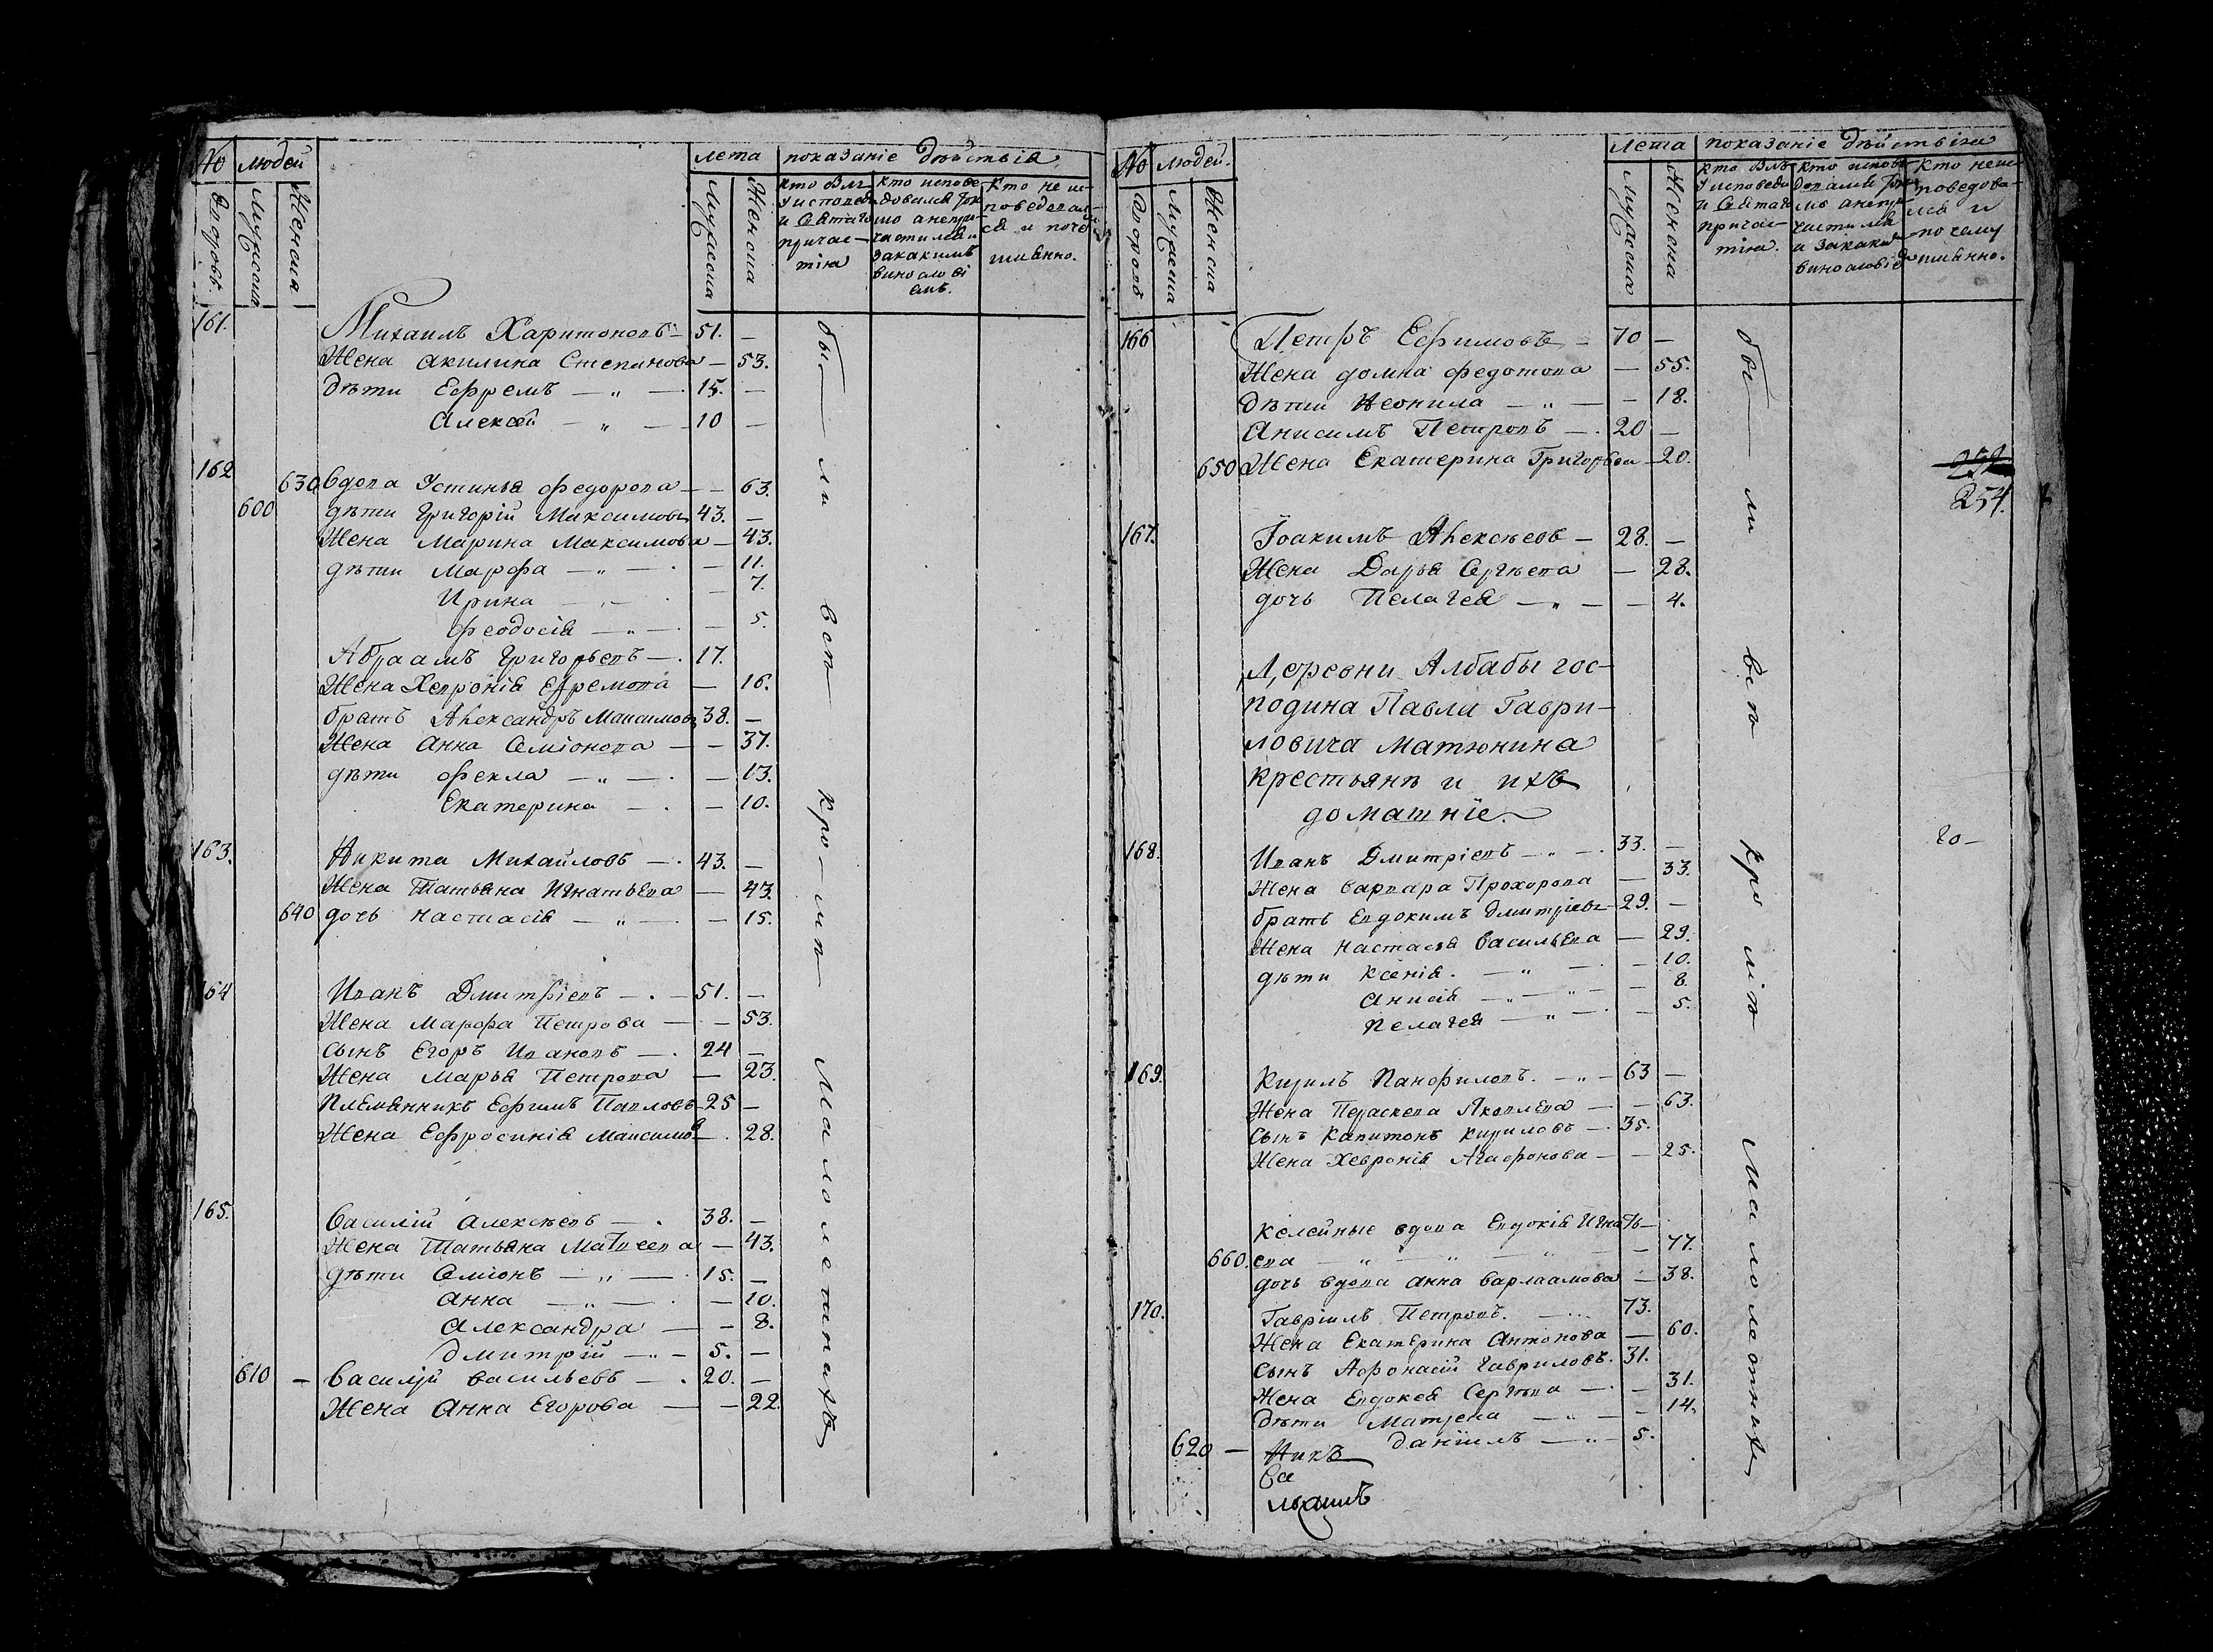 № людей лета показание действия
дворовъ Мужеска Женска Мужеска Женска
кто былъ
у исповеди
и святаго
причас-
тия
кто испове-
довался ток
мо а непри-
частился и
за какимъ
винослові
емъ.
кто не ис-
поведовал-
ся и поче
му
имянно.
161. Михаилъ Харитоновъ — 51. —
Жена Акилина Степанова — 53.
дѣти Ефремъ — „ — 15. —
Алексей — „ — 10 —
162 630 вдова Устинья Федорова — — 63.
600 дѣти Григорій Максимовъ 43. —
Жена Марина Максимова — 43.
дѣти Марфа — „ — . — 11.
Ирина — „ — . — 7.
Феодосія — „ — . — 5.
Абраамъ Григорьевъ — . 17.
Жена Хевронія Ефремова — 16.
братъ Александръ Максимовъ 38. —
Жена Анна Семіонова — — 37.
дѣти Фекла — „ — . — 13.
Екатерина — . — 10.
163. Никита Михайловъ — . 43. —
Жена Татьяна Игнатьева — 43.
640 дочь Настасія — „ — — 15.
164 Иванъ Дмитріевъ — . — 51. —
Жена Марфа Петрова — — 53.
сынъ Егоръ Ивановъ — . 24 —
Жена Марья Петрова — 23.
Племянникъ Ефимъ Павловъ — 25 —
Жена Ефросинія Максимов — . 28.
165. Василій Алексѣевъ — . 38. —
Жена Татьяна Матвеева — 43.
дѣти Семіонъ — „ — . 15. —
Анна — „ — . — 10.
Александра — — 8.
Дмитрій — „ — 5. —
610 — Василій Васильевъ — . 20. —
Жена Анна Егорова — — 22.
бы — ли всѣ кро — мѣ малолетныхъ
№ людей. лета показаніе действія
дворовъ Мужеска Женска Мужеска Женска
кто былъ
у исповеди
и святаго
причас-
тія.
кто испове
довался ток
мо а непри-
частился
и за какимъ
винословіе
кто не ис
поведова-
лся и
почему
имянно.
166 Петръ Ефимовъ — 70 —
Жена Домна Федотова — 55.
дѣти Неонила — „ — — 18.
Анисимъ Петровъ — . 20 —
650 Жена Екатерина Григорьева — 20.
254.
167. Іоакимъ Алексѣевъ — 28. —
Жена Дарья Сергѣева — 28.
дочь Пелагея — „ — — 4.
Деревни Албабы гос-
подина Павла Гаври-
ловича Матюнина
крестьянѣ и ихъ
доматніе.
168. Иванъ Дмитріевъ — „ — . 33. —
Жена Варвара Прохорова — 33.
братъ Евдокимъ Дмитріевъ — 29. —
Жена Настасья Васильева — 29.
дѣти Ксенія. — „ — . — 10.
Анисія — „ — „ — — 8.
Пелагея — „ — . — 5.
169. Кирилъ Панфиловъ. — „ — 63 —
Жена Параскева Яковлева — — 63.
сынъ Капитонъ Кириловъ — . 35.
Жена Хевронія Агафонова — — 25.
Келейные вдова Евдокія Игнать —
660. ева — „ — „ — „ — — 77.
дочь вдова Анна Варлаамова — 38.
170. Гавріилъ Петровъ. — 73.
Жена Екатерина Антонова — 60.
сынъ Афонасій Гавриловъ. 31.
Жена Евдокея Сергѣева — . — 31.
дѣти Матрена — „ — — 14.
620 — Даніилъ — „ — 5.
Никъ
Ва
бы — ли всѣ кро мѣ малолетныхъ